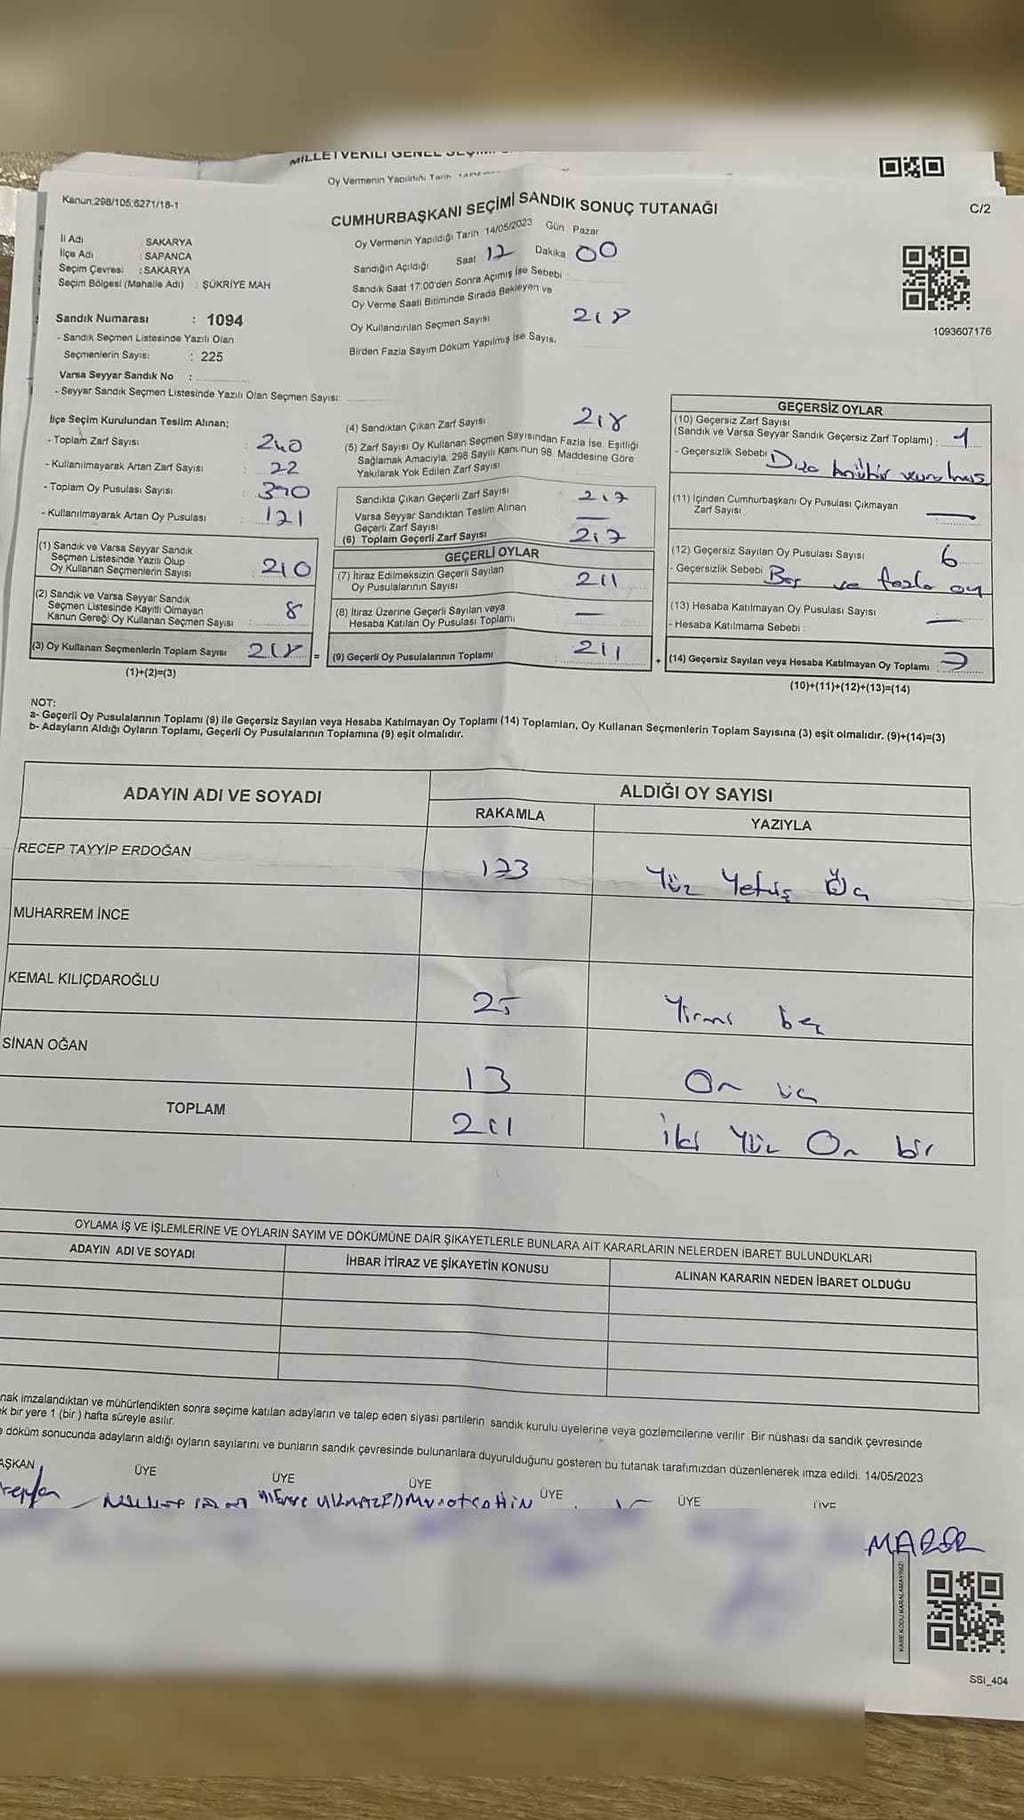 MİLLETVEKİLİ GENEL
Oy Vermenin Yapıldığı Tarih
Kanun:298/105;6271/18-1
C/2
CUMHURBAŞKANI SEÇİMİ SANDIK SONUÇ TUTANAĞI
Oy Vermenin Yapıldığı Tarih 14/05/2023 Gün Pazar
İl Adı : SAKARYA
İlçe Adı : SAPANCA
Seçim Çevresi : SAKARYA
Seçim Bölgesi (Mahalle Adı) : ŞÜKRİYE MAH
Sandığın Açıldığı Saat 12 Dakika 00
Sandık Saat 17:00'den Sonra Açılmış İse Sebebi
Oy Verme Saati Bitiminde Sırada Bekleyen ve
Oy Kullandırılan Seçmen Sayısı 218
Birden Fazla Sayım Döküm Yapılmış İse Sayısı.
1093607176
Sandık Numarası : 1094
- Sandık Seçmen Listesinde Yazılı Olan
Seçmenlerin Sayısı : 225
Varsa Seyyar Sandık No :
- Seyyar Sandık Seçmen Listesinde Yazılı Olan Seçmen Sayısı:
İlçe Seçim Kurulundan Teslim Alınan;
- Toplam Zarf Sayısı : 240
- Kullanılmayarak Artan Zarf Sayısı : 22
- Toplam Oy Pusulası Sayısı : 390
- Kullanılmayarak Artan Oy Pusulası : 121
(1) Sandık ve Varsa Seyyar Sandık
Seçmen Listesinde Yazılı Olup
Oy Kullanan Seçmenlerin Sayısı 210
(2) Sandık ve Varsa Seyyar Sandık
Seçmen Listesinde Kayıtlı Olmayan
Kanun Gereği Oy Kullanan Seçmen Sayısı 8
(3) Oy Kullanan Seçmenlerin Toplam Sayısı 218 =
(1)+(2)=(3)
(4) Sandıktan Çıkan Zarf Sayısı 218
(5) Zarf Sayısı Oy Kullanan Seçmen Sayısından Fazla İse, Eşitliği
Sağlamak Amacıyla, 298 Sayılı Kanunun 98. Maddesine Göre
Yakılarak Yok Edilen Zarf Sayısı
Sandıkta Çıkan Geçerli Zarf Sayısı 217
Varsa Seyyar Sandıktan Teslim Alınan
Geçerli Zarf Sayısı —
(6) Toplam Geçerli Zarf Sayısı 217
GEÇERLİ OYLAR
(7) İtiraz Edilmeksizin Geçerli Sayılan
Oy Pusulalarının Sayısı 211
(8) İtiraz Üzerine Geçerli Sayılan veya
Hesaba Katılan Oy Pusulası Toplamı —
(9) Geçerli Oy Pusulalarının Toplamı 211 +
GEÇERSİZ OYLAR
(10) Geçersiz Zarf Sayısı
(Sandık ve Varsa Seyyar Sandık Geçersiz Zarf Toplamı) : 1
- Geçersizlik Sebebi mühür vurulmuş
(11) İçinden Cumhurbaşkanı Oy Pusulası Çıkmayan
Zarf Sayısı —
(12) Geçersiz Sayılan Oy Pusulası Sayısı 6
- Geçersizlik Sebebi Boş ve fazla oy
(13) Hesaba Katılmayan Oy Pusulası Sayısı —
- Hesaba Katılmama Sebebi :
(14) Geçersiz Sayılan veya Hesaba Katılmayan Oy Toplamı : 7
(10)+(11)+(12)+(13)=(14)
NOT:
a- Geçerli Oy Pusulalarının Toplamı (9) ile Geçersiz Sayılan veya Hesaba Katılmayan Oy Toplamı (14) Toplamları, Oy Kullanan Seçmenlerin Toplam Sayısına (3) eşit olmalıdır. (9)+(14)=(3)
b- Adayların Aldığı Oyların Toplamı, Geçerli Oy Pusulalarının Toplamına (9) eşit olmalıdır.
ADAYIN ADI VE SOYADI ALDIĞI OY SAYISI
RAKAMLA YAZIYLA
RECEP TAYYİP ERDOĞAN 173 Yüz Yetmiş Üç
MUHARREM İNCE
KEMAL KILIÇDAROĞLU 25 Yirmi beş
SİNAN OĞAN 13 On üç
TOPLAM 211 İki Yüz On bir
OYLAMA İŞ VE İŞLEMLERİNE VE OYLARIN SAYIM VE DÖKÜMÜNE DAİR ŞİKAYETLERLE BUNLARA AİT KARARLARIN NELERDEN İBARET BULUNDUKLARI
ADAYIN ADI VE SOYADI İHBAR İTİRAZ VE ŞİKAYETİN KONUSU ALINAN KARARIN NEDEN İBARET OLDUĞU
nak imzalandıktan ve mühürlendikten sonra seçime katılan adayların ve talep eden siyasi partilerin sandık kurulu üyelerine veya gözlemcilerine verilir. Bir nüshası da sandık çevresinde
k bir yere 1 (bir) hafta süreyle asılır.
döküm sonucunda adayların aldığı oyların sayılarını ve bunların sandık çevresinde bulunanlara duyurulduğunu gösteren bu tutanak tarafımızdan düzenlenerek imza edildi. 14/05/2023
AŞKAN ÜYE ÜYE ÜYE ÜYE ÜYE ÜYE
KARE KODU KARALAMAYINIZ!
SSI_404